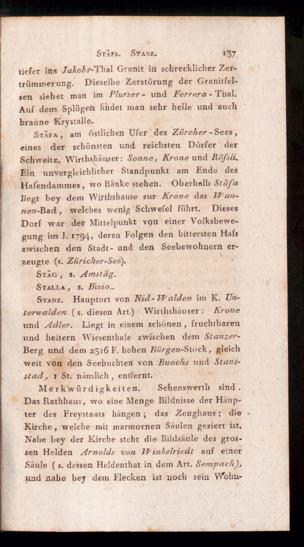 STÄFA. STANZ. 137
tiefer ins Jakobs-Thal Granit in schrecklicher Zer-
trümmerung. Dieselbe Zerstörung der Granitfel-
sen siehet man im Plurser- und Ferrera-Thal.
Auf dem Splügen findet man sehr helle und auch
braune Krystalle.
STÄFA, am östlichen Ufer des Zürcher-Sees,
eines der schönsten und reichsten Dörfer der
Schweitz. Wirthshäuser: Sonne, Krone und Rössli.
Ein unvergleichlicher Standpunkt am Ende des
Hafendammes, wo Bänke stehen. Oberhalb Stäfa
liegt bey dem Wirthshause zur Krone das Wan-
nen-Bad, welches wenig Schwefel führt. Dieses
Dorf war der Mittelpunkt von einer Volksbewe-
gung im J. 1794, deren Folgen den bittersten Hass
zwischen den Stadt- und den Seebewohnern er-
zeugte (s. Züricher-See).
STÄG, s. Amstäg.
STALLA, s. Bivio..
STANZ. Hauptort von Nid-Walden im K. Un-
terwalden (s. diesen Art.) Wirthshäuser: Krone
und Adler. Liegt in einem schönen, fruchtbaren
und heitern Wiesenthale zwischen dem Stanzer-
Berg und dem 2316 F. hohen Bürgen-Stock, gleich
weit von den Seebuchten von Buochs und Stans-
stad, 1 St. nämlich, entfernt.
Merkwürdigkeiten. Sehenswerth sind.
Das Rathhaus, wo eine Menge Bildnisse der Häup-
ter des Freystaats hängen; das Zeughaus; die
Kirche, welche mit marmornen Säulen geziert ist.
Nahe bey der Kirche steht die Bildsäule des gros-
sen Helden Arnolds von Winkelriedt auf einer
Säule (s. dessen Heldenthat in dem Art. Sempach),
und nahe bey dem Flecken ist noch sein Wohn-